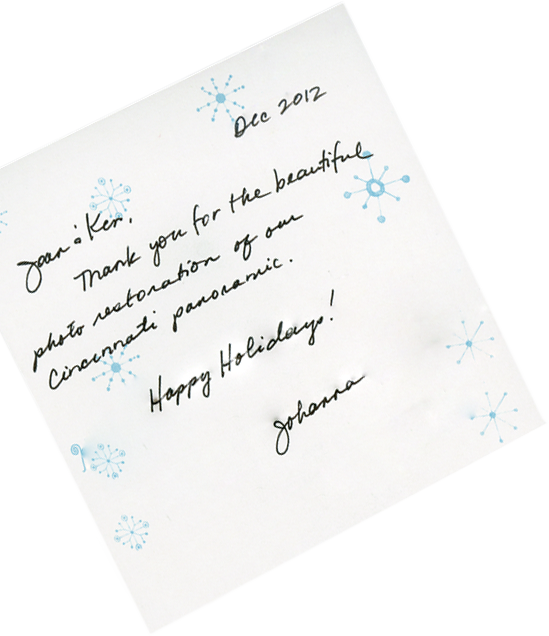 Dec 2012
Joan & Ken,
Thank you for the beautiful
photo restoration of our
Cincinnati panoramic.
Happy Holidays!
Johanna